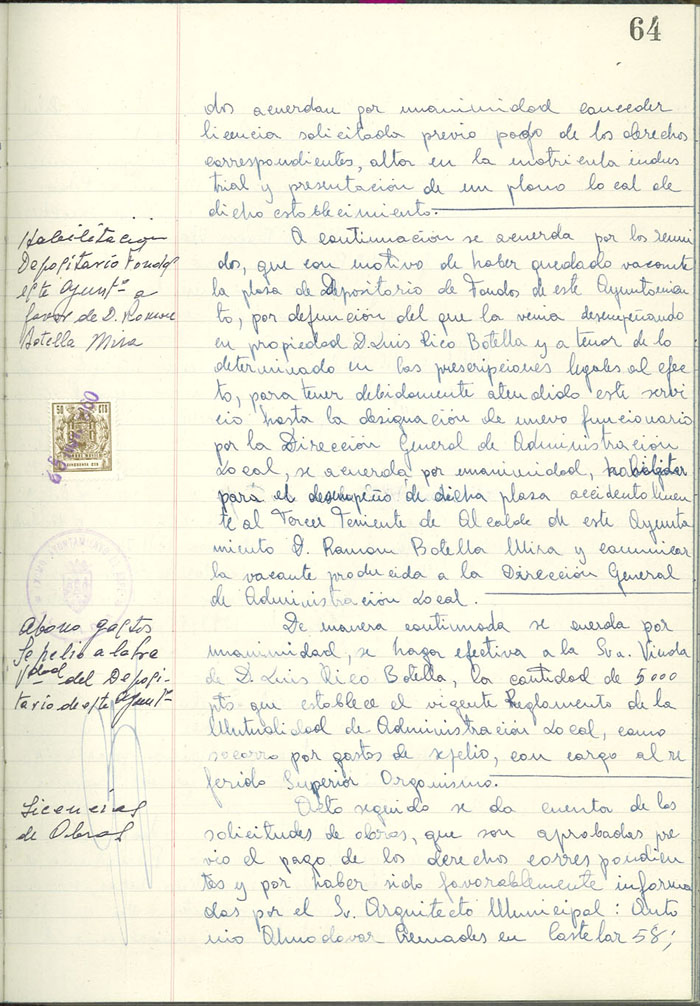 64
dos acuerdan por unanimidad conceder
licencia solicitada previo pago de los derechos
correspondientes, altar en la matricula indus
trial y presentación de un plano local de
dicho establecimiento.
Habilitacion
Depositario Fondos
este Ayuntº a
favor de D. Ramon
Botella Mira
A continuación se acuerda por los reuni
dos, que con motivo de haber quedado vacante
la plaza de Depositario de Fondos de este Ayuntamien
to, por defunción del que la venia desempeñando
en propiedad D. Luis Rico Botella y a tenor de lo
determinado en las prescripciones legales al efec
to, para tener debidamente atendido este servi
cio hasta la designación de nuevo funcionario
por la Dirección General de Administración
Local, se acuerda por unanimidad, habilitar
para el desempeño de dicha plaza accidentalmen
te al Tercer Teniente de Alcalde de este Ayunta
miento D. Ramon Botella Mira y comunicar
la vacante producida a la Dirección General
de Administración Local.
50 CTS
Abono gastos
Sepelio a la Vra
del Deposi-
tario de este Ayuntº
De manera continuada se acuerda por
unanimidad, se haga efectiva a la Sra. Viuda
de D. Luis Rico Botella, la cantidad de 5000
pts que establece el vigente Reglamento de la
Mutualidad de Administración Local, como
socorro por gastos de sepelio, con cargo al re
ferido Superior Organismo.
Licencias
de Obras
Acto seguido se da cuenta de las
solicitudes de obras, que son aprobadas pre
vio el pago de los derechos correspondien
tes y por haber sido favorablemente informa
das por el Sr. Arquitecto Municipal: Anto
nio Almodovar Cremades en Castelar 58;